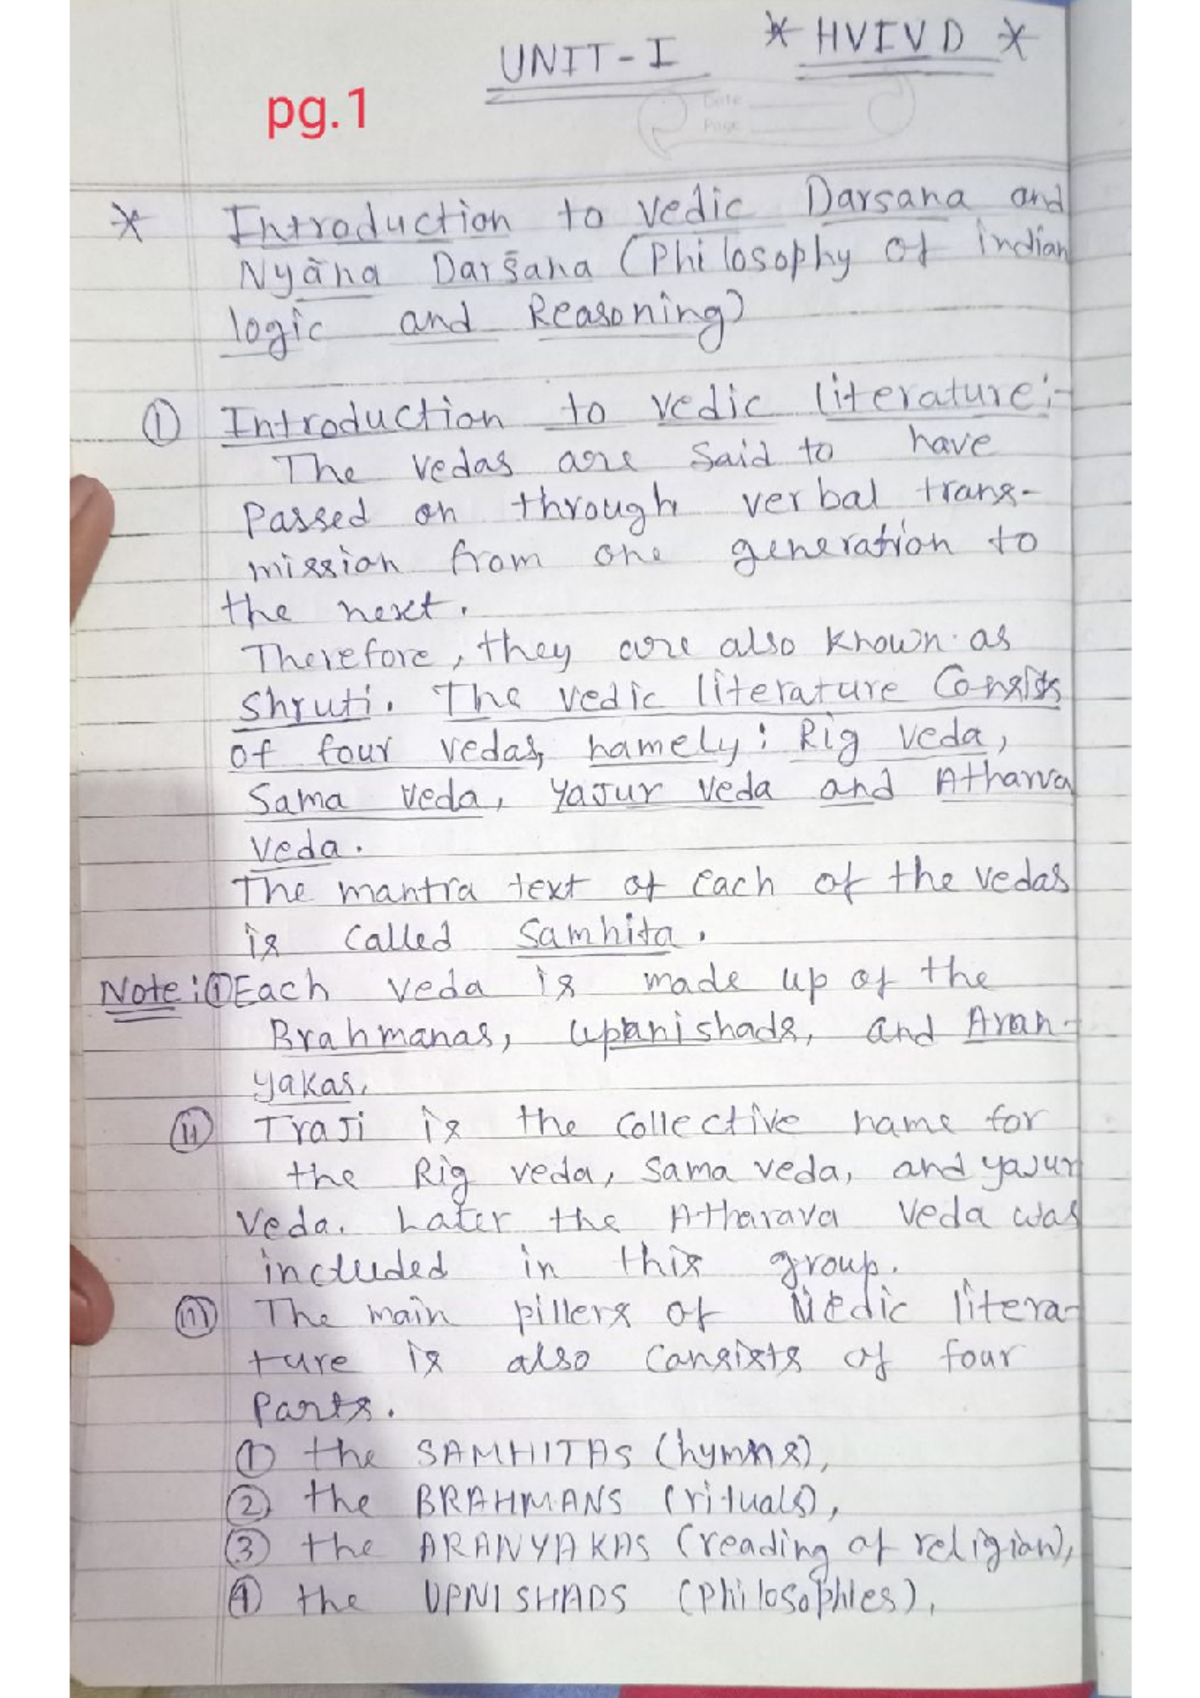 UNIT-I * HVIVD *
pg.1
Date
Page
* Introduction to Vedic Darsana and
Nyāna Darśana (Philosophy of indian
logic and Reasoning)
① Introduction to Vedic literature:-
The Vedas are said to have
Passed on through verbal trans-
mission from one generation to
the next.
Therefore, they are also known as
Shruti. The Vedic literature Consists
of four Vedas, namely: Rig Veda,
Sama Veda, Yajur Veda and Atharva
Veda.
The mantra text of each of the Vedas
is called Samhita.
Note: ① Each Veda is made up of the
Brahmanas, Upanishads, and Aran-
yakas.
(ii) Traji is the collective name for
the Rig Veda, Sama Veda, and Yajur
Veda. Later the Atharava Veda was
included in this group.
(iii) The main pillers of Vedic litera-
ture is also consists of four
Parts.
① the SAMHITAS (hymns),
② the BRAHMANS (rituals),
③ the ARANYAKAS (reading of religion),
④ the UPNISHADS (Philosophies),